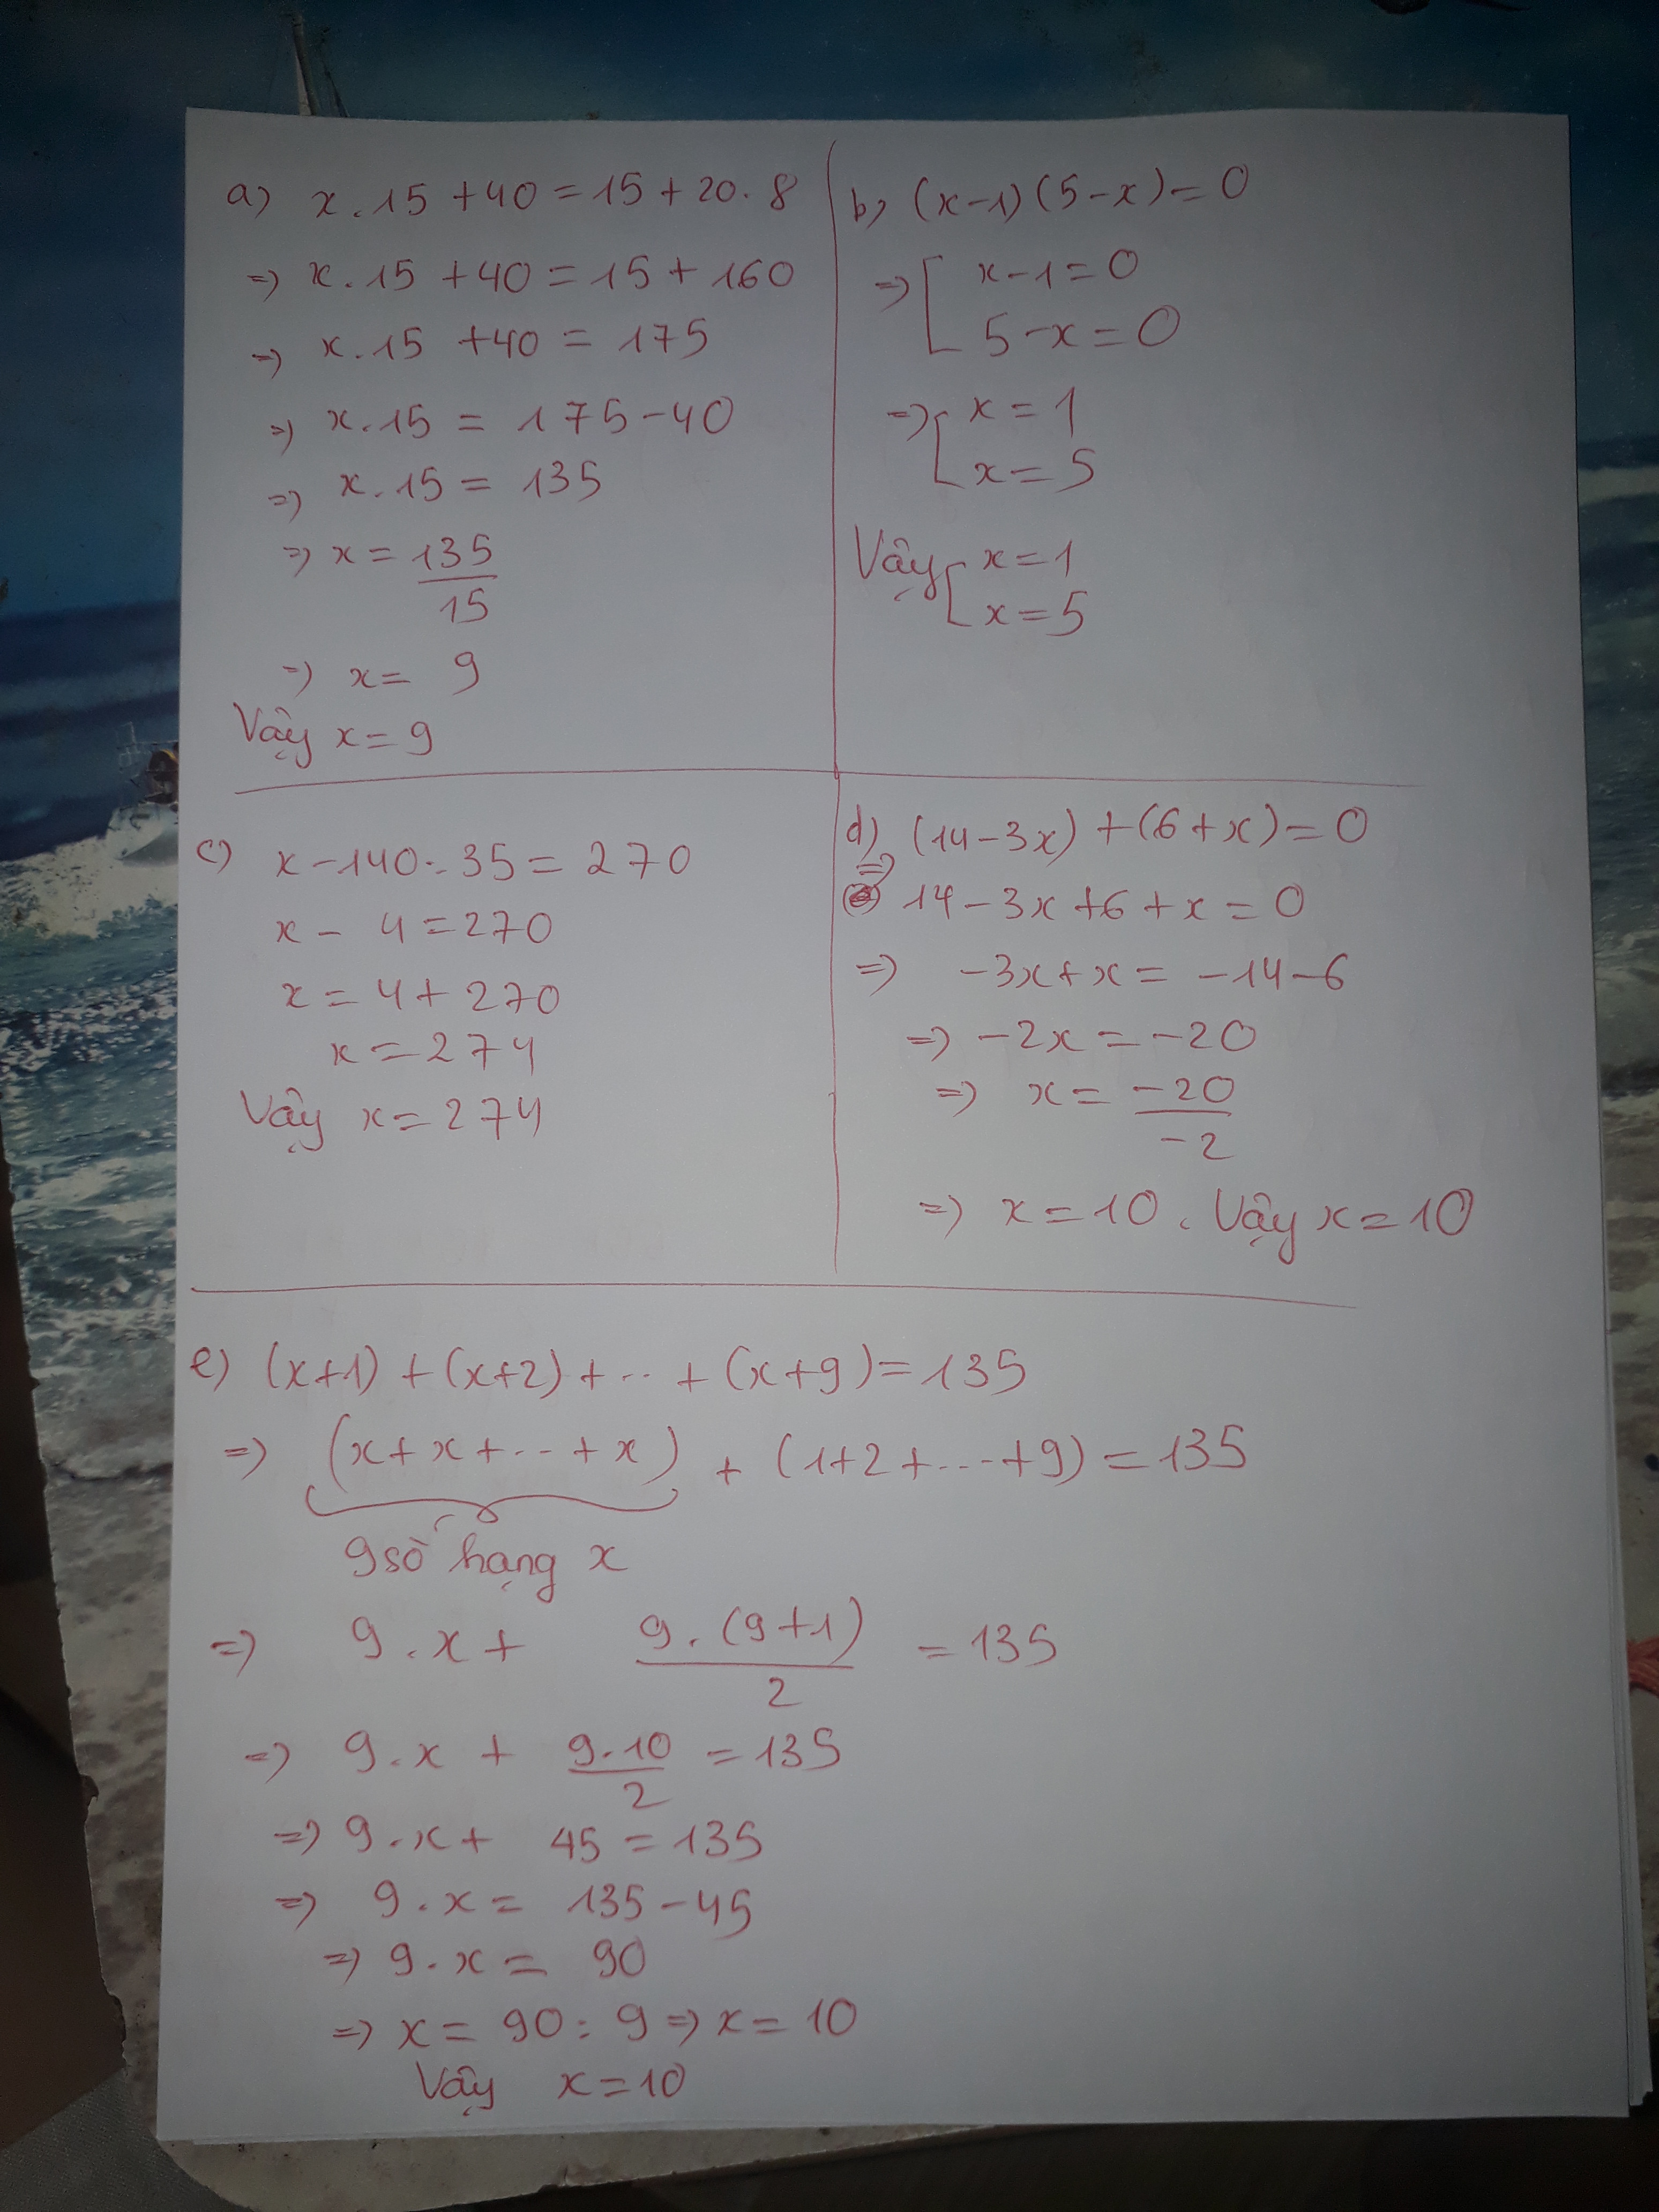 a) x.15 + 40 = 15 + 20.8
=> x.15 + 40 = 15 + 160
=> x.15 + 40 = 175
=> x.15 = 175 - 40
=> x.15 = 135
=> x = 135/15
=> x = 9
Vậy x = 9
b) (x-1)(5-x) = 0
=> [ x - 1 = 0
5 - x = 0
=> [ x = 1
x = 5
Vậy [ x = 1
x = 5
c) x - 140 : 35 = 270
x - 4 = 270
x = 4 + 270
x = 274
Vậy x = 274
d) (14 - 3x) + (6 + x) = 0
=> 14 - 3x + 6 + x = 0
=> -3x + x = -14 - 6
=> -2x = -20
=> x = -20/-2
=> x = 10. Vậy x = 10
e) (x+1) + (x+2) + .. + (x+9) = 135
=> (x + x + ... + x) + (1+2+...+9) = 135
9 số hạng x
=> 9.x + 9.(9+1)/2 = 135
=> 9.x + 9.10/2 = 135
=> 9.x + 45 = 135
=> 9.x = 135 - 45
=> 9.x = 90
=> x = 90 : 9 => x = 10
Vậy x = 10